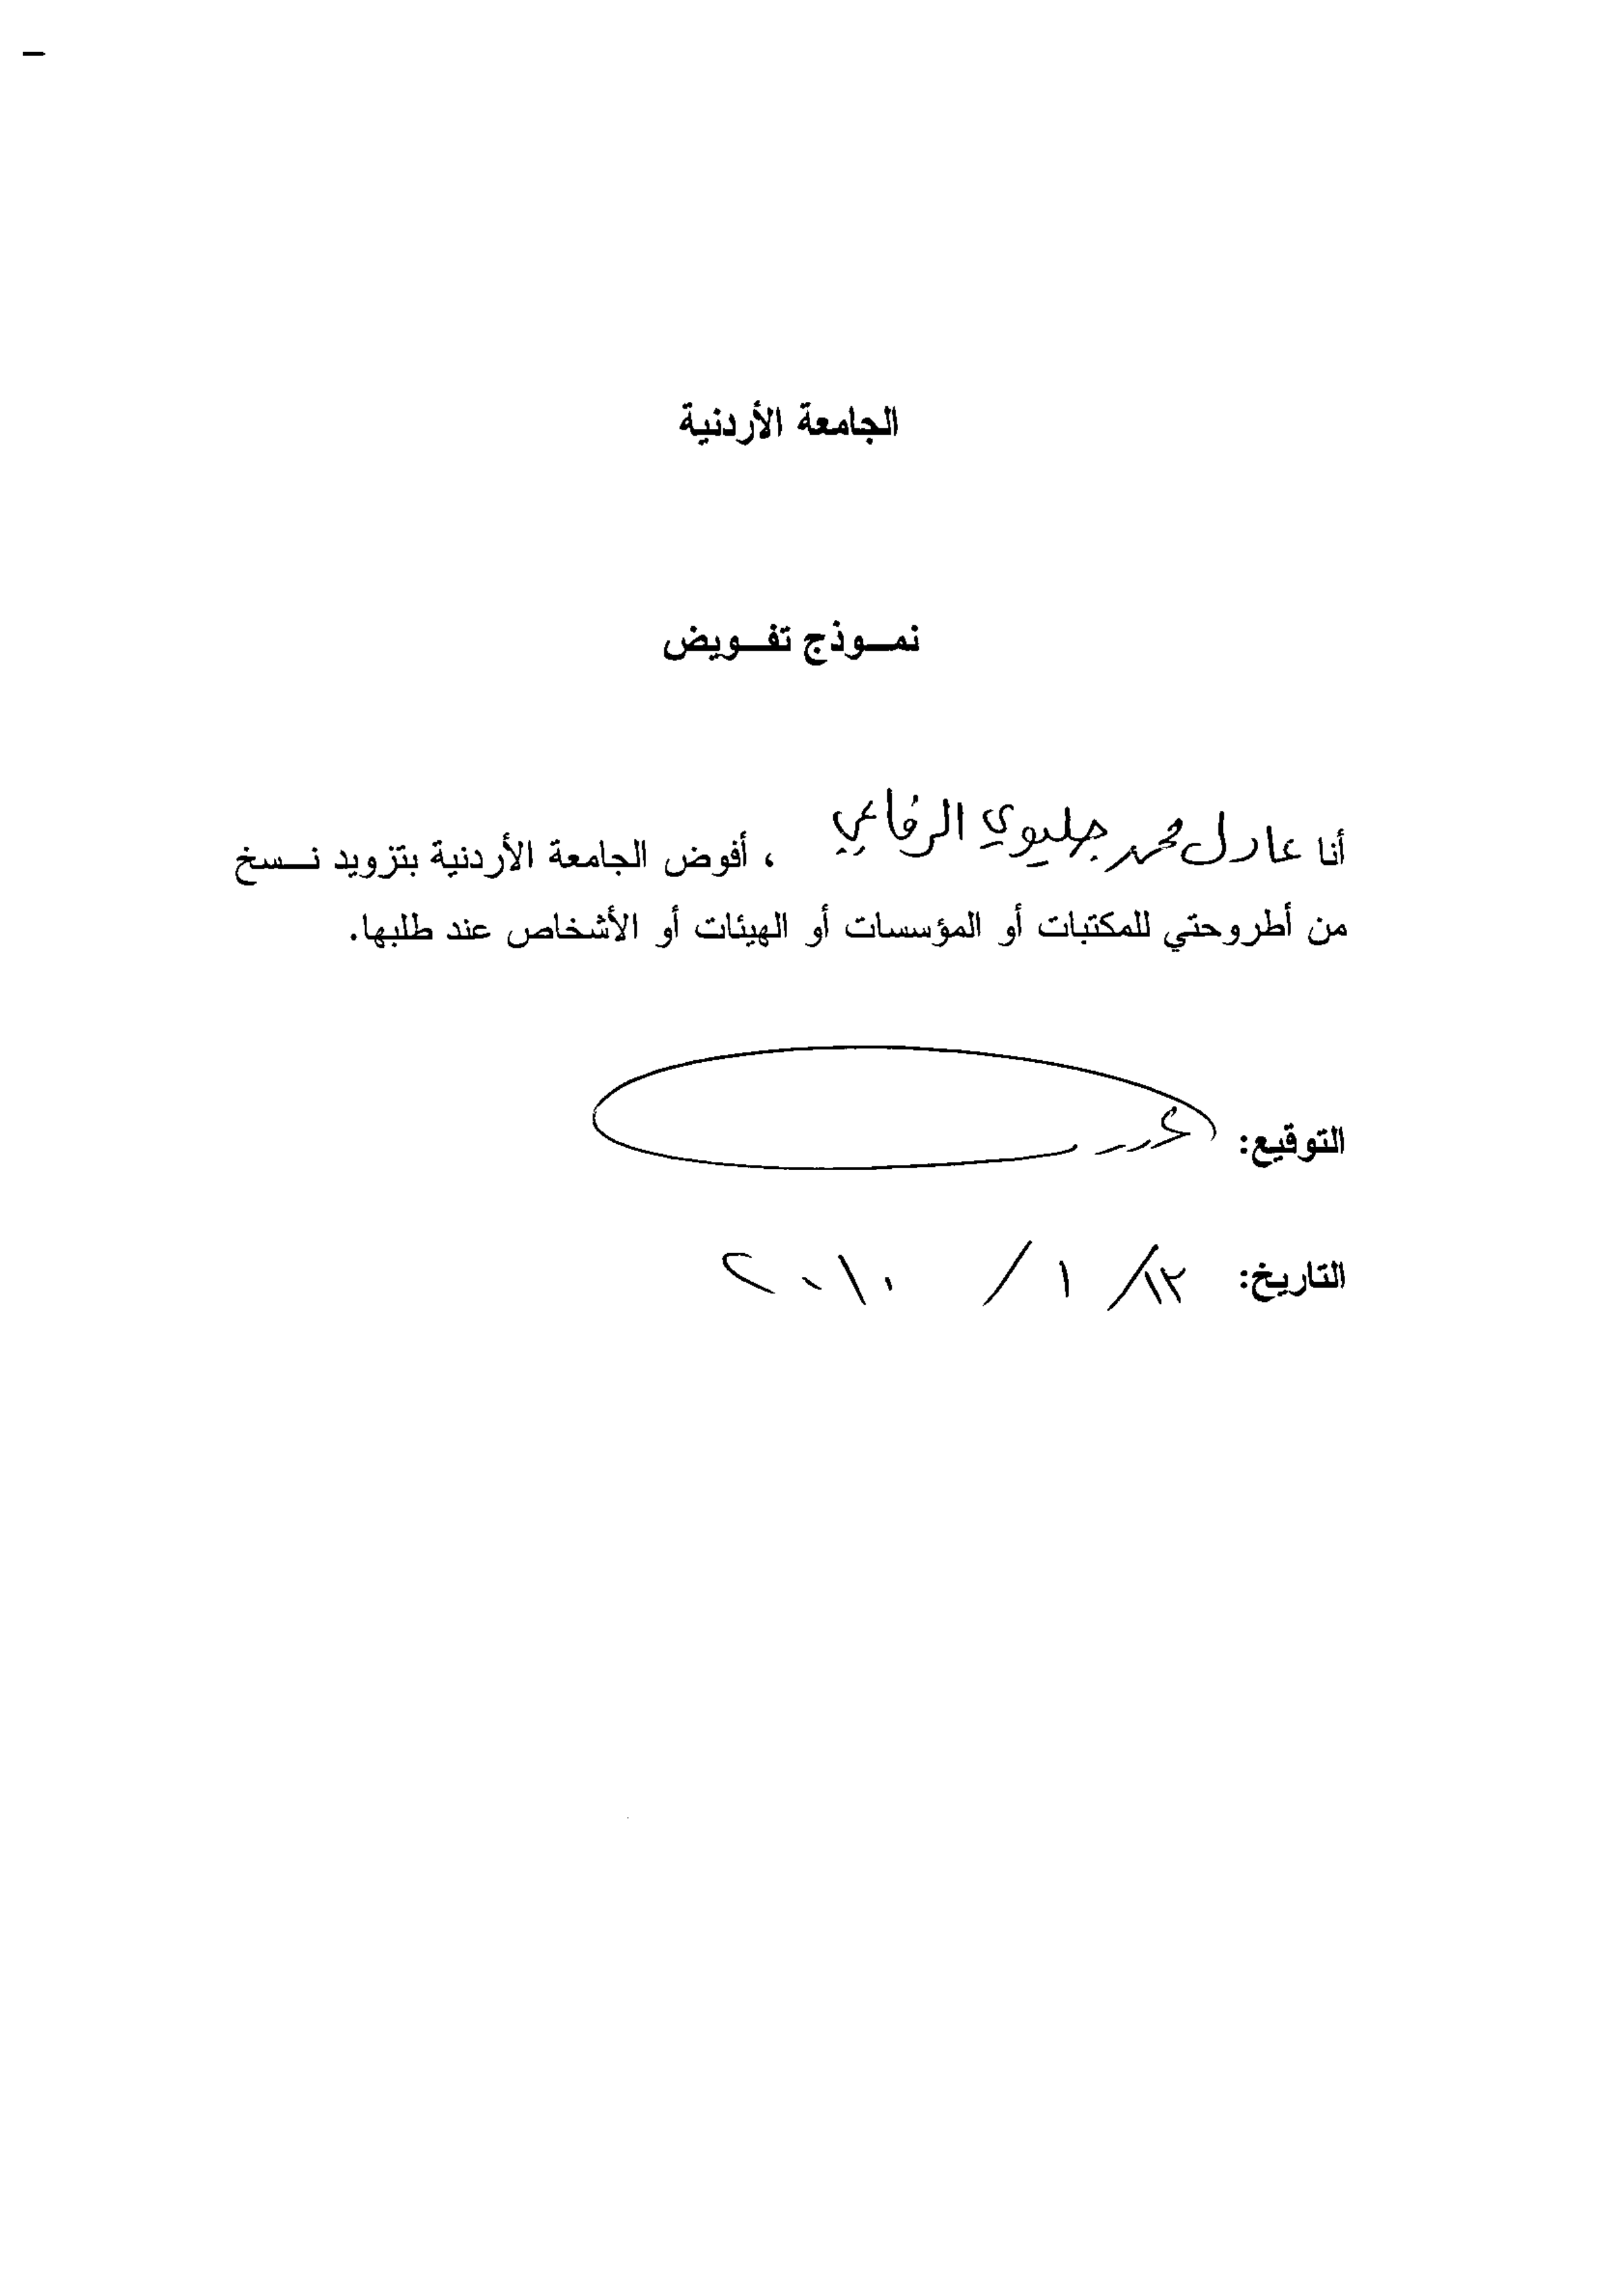 الجامعة الأردنية
نمـوذج تفـويض
أنا عادل محمد جليوي الرفاعي ، أفوض الجامعة الأردنية بتزويد نـسخ
من أطروحتي للمكتبات أو المؤسسات أو الهيئات أو الأشخاص عند طلبها.
التوقيع:
التاريخ: ١٢/ ١ / ٢٠١٠